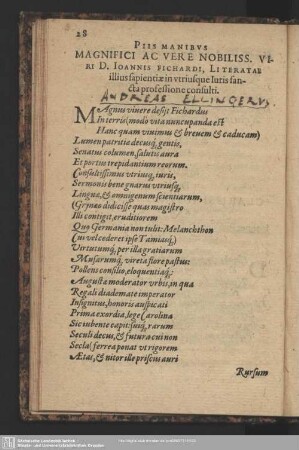 28
PIIS MANIBVS
MAGNIFICI AC VERE NOBILISS. VI-
RI D. IOANNIS FICHARDI, LITERATAE
illius sapientiæ in vtriusque Iuris san-
cta professione consulti.
ANDREAS ELLINGERVS.
MAgnus viuere desijt Fichardus
In terris (modò vita nuncupanda est
Hanc quam viuimus & breuem & caducam)
Lumen patritiæ decusq́; gentis,
Senatus columen, salutis aura
Et portus trepidantium reorum.
Consultissimus vtriusq́; iuris,
Sermonis bene gnarus vtriusq́;
Linguæ, & omnigenûm scientiarum,
(Germeo didicisse quas magistro
Illi contigit, eruditiorem
Quo Germania non tulit: Melanchthon
Cui vel cederet ipse
Virtutumq́; per illa gratiarum
Musarumq́; vireta flore pastus:
Pollens consilio, eloquentiaq́;:
Augustæ moderator vrbis, in qua
Regali diademate imperator
Insignitur, honoris auspicati
Prima exordia, lege Carolina
Sic iubente capit: suiq́; rarum
Seculi decus, & futura cui non
Secla, ferrea ponat vt rigorem
Ætas, & nitor ille priscus auri
Rursum